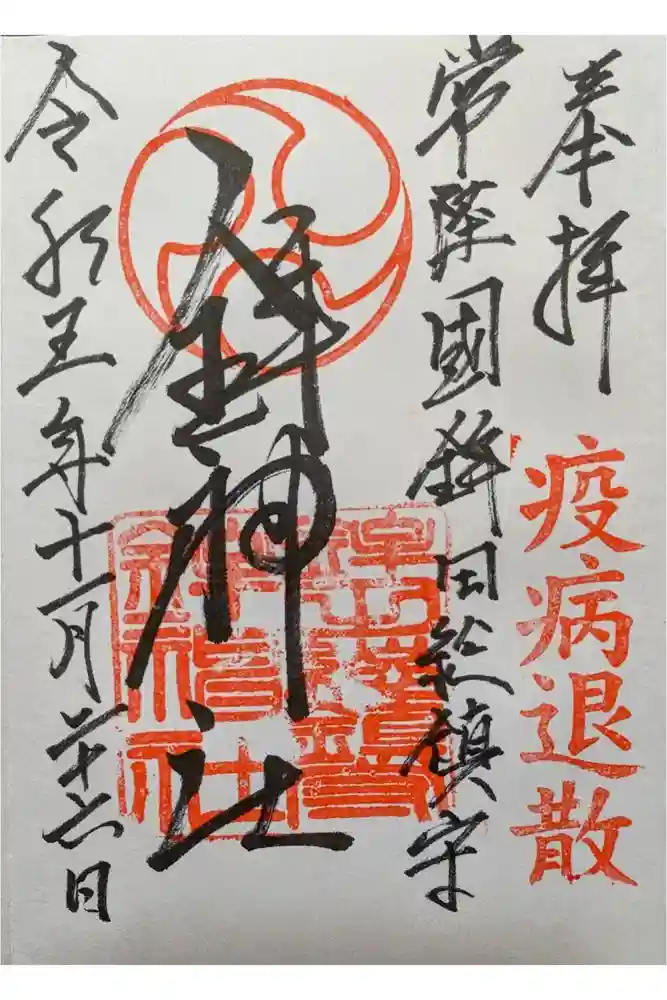 奉拝
疫病退散
常陸國鉾田総鎮守
鉾神社
令和五年十一月二十六日